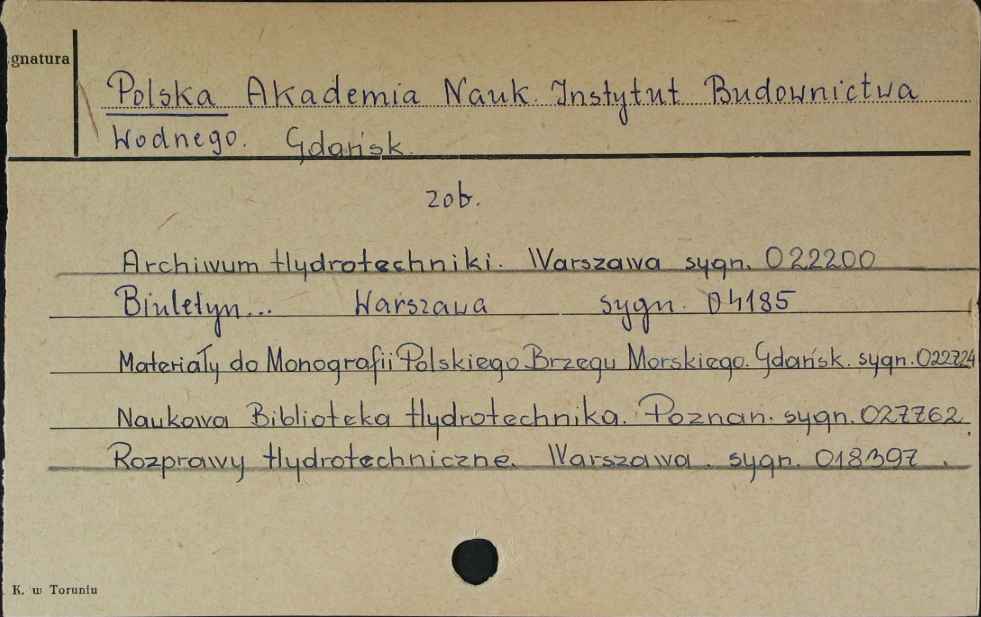 gnatura
Polska Akademia Nauk. Instytut Budownictwa
Wodnego. Gdańsk.
zob.
Archiwum Hydrotechniki. Warszawa sygn. 022200
Biuletyn... Warszawa sygn. 04185
Materiały do Monografii Polskiego Brzegu Morskiego. Gdańsk. sygn. 022724
Naukowa Biblioteka Hydrotechnika. Poznan. sygn. 027762.
Rozprawy Hydrotechniczne. Warszawa. sygn. 018397.
K. w Toruniu